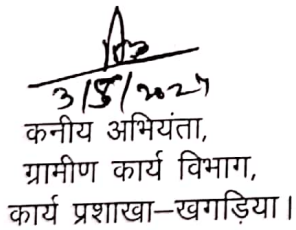 कनीय अभियंता,
ग्रामीण कार्य विभाग,
कार्य प्रशाखा–खगड़िया।